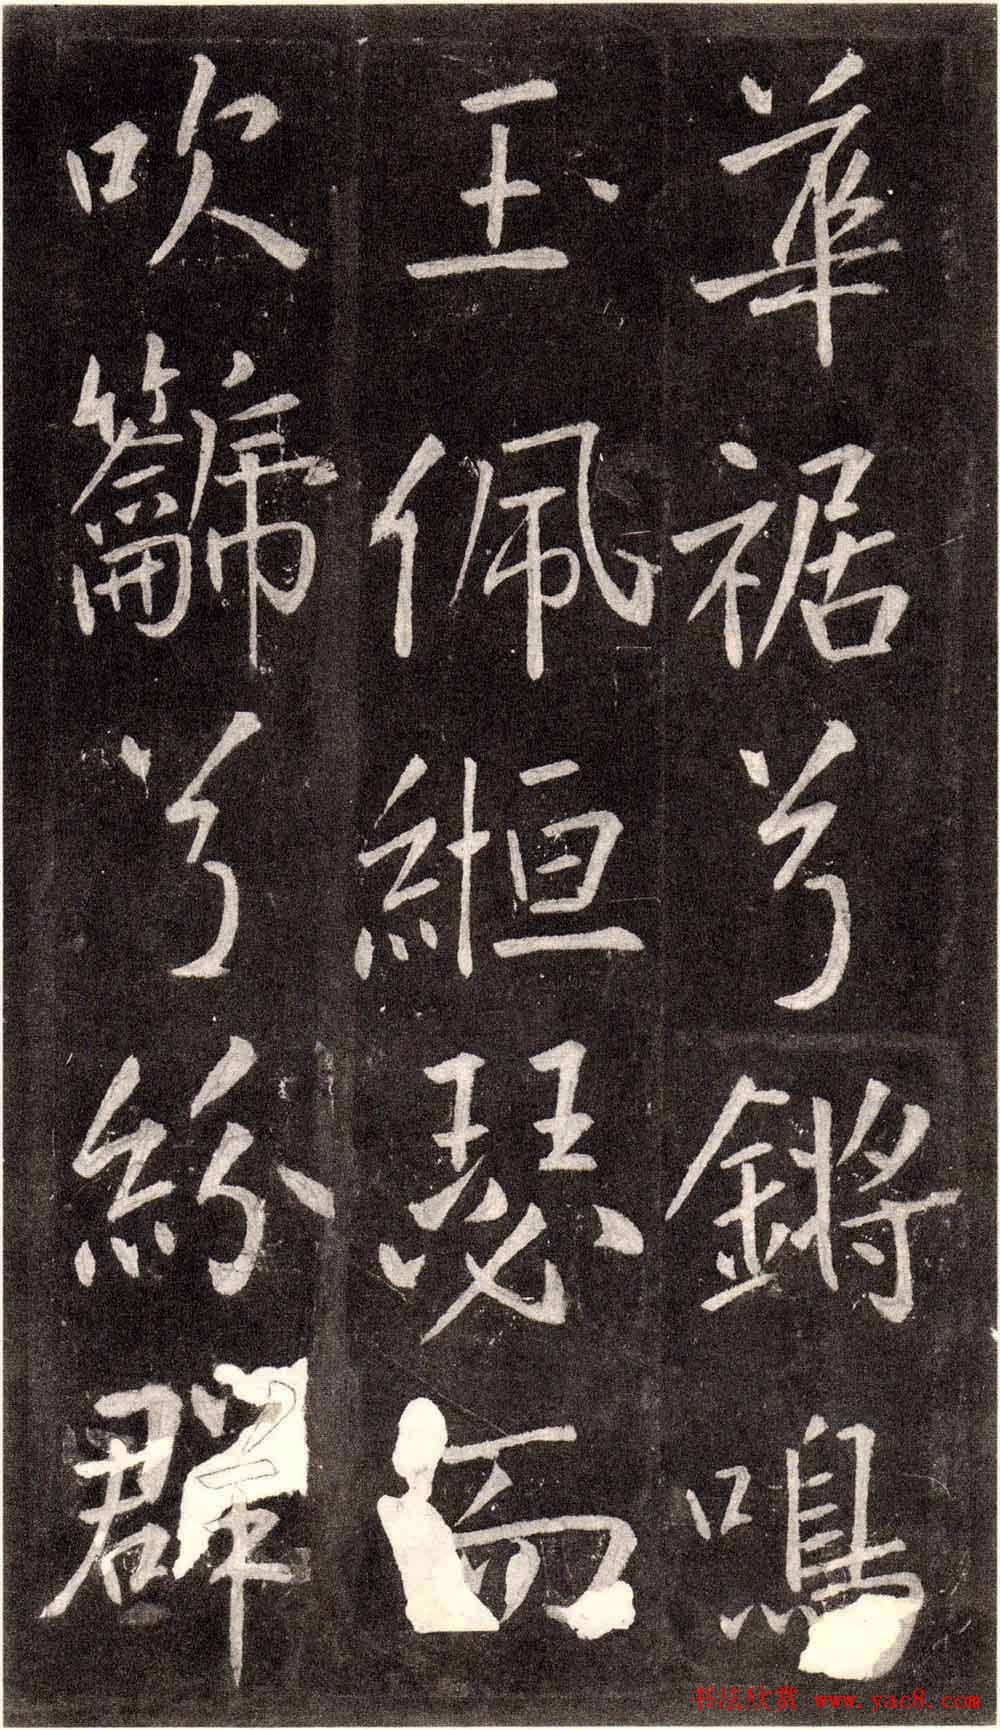 華裾兮鏘鳴
玉佩絙瑟而
吹籲兮紛群
书法欣赏 www.yac8.com